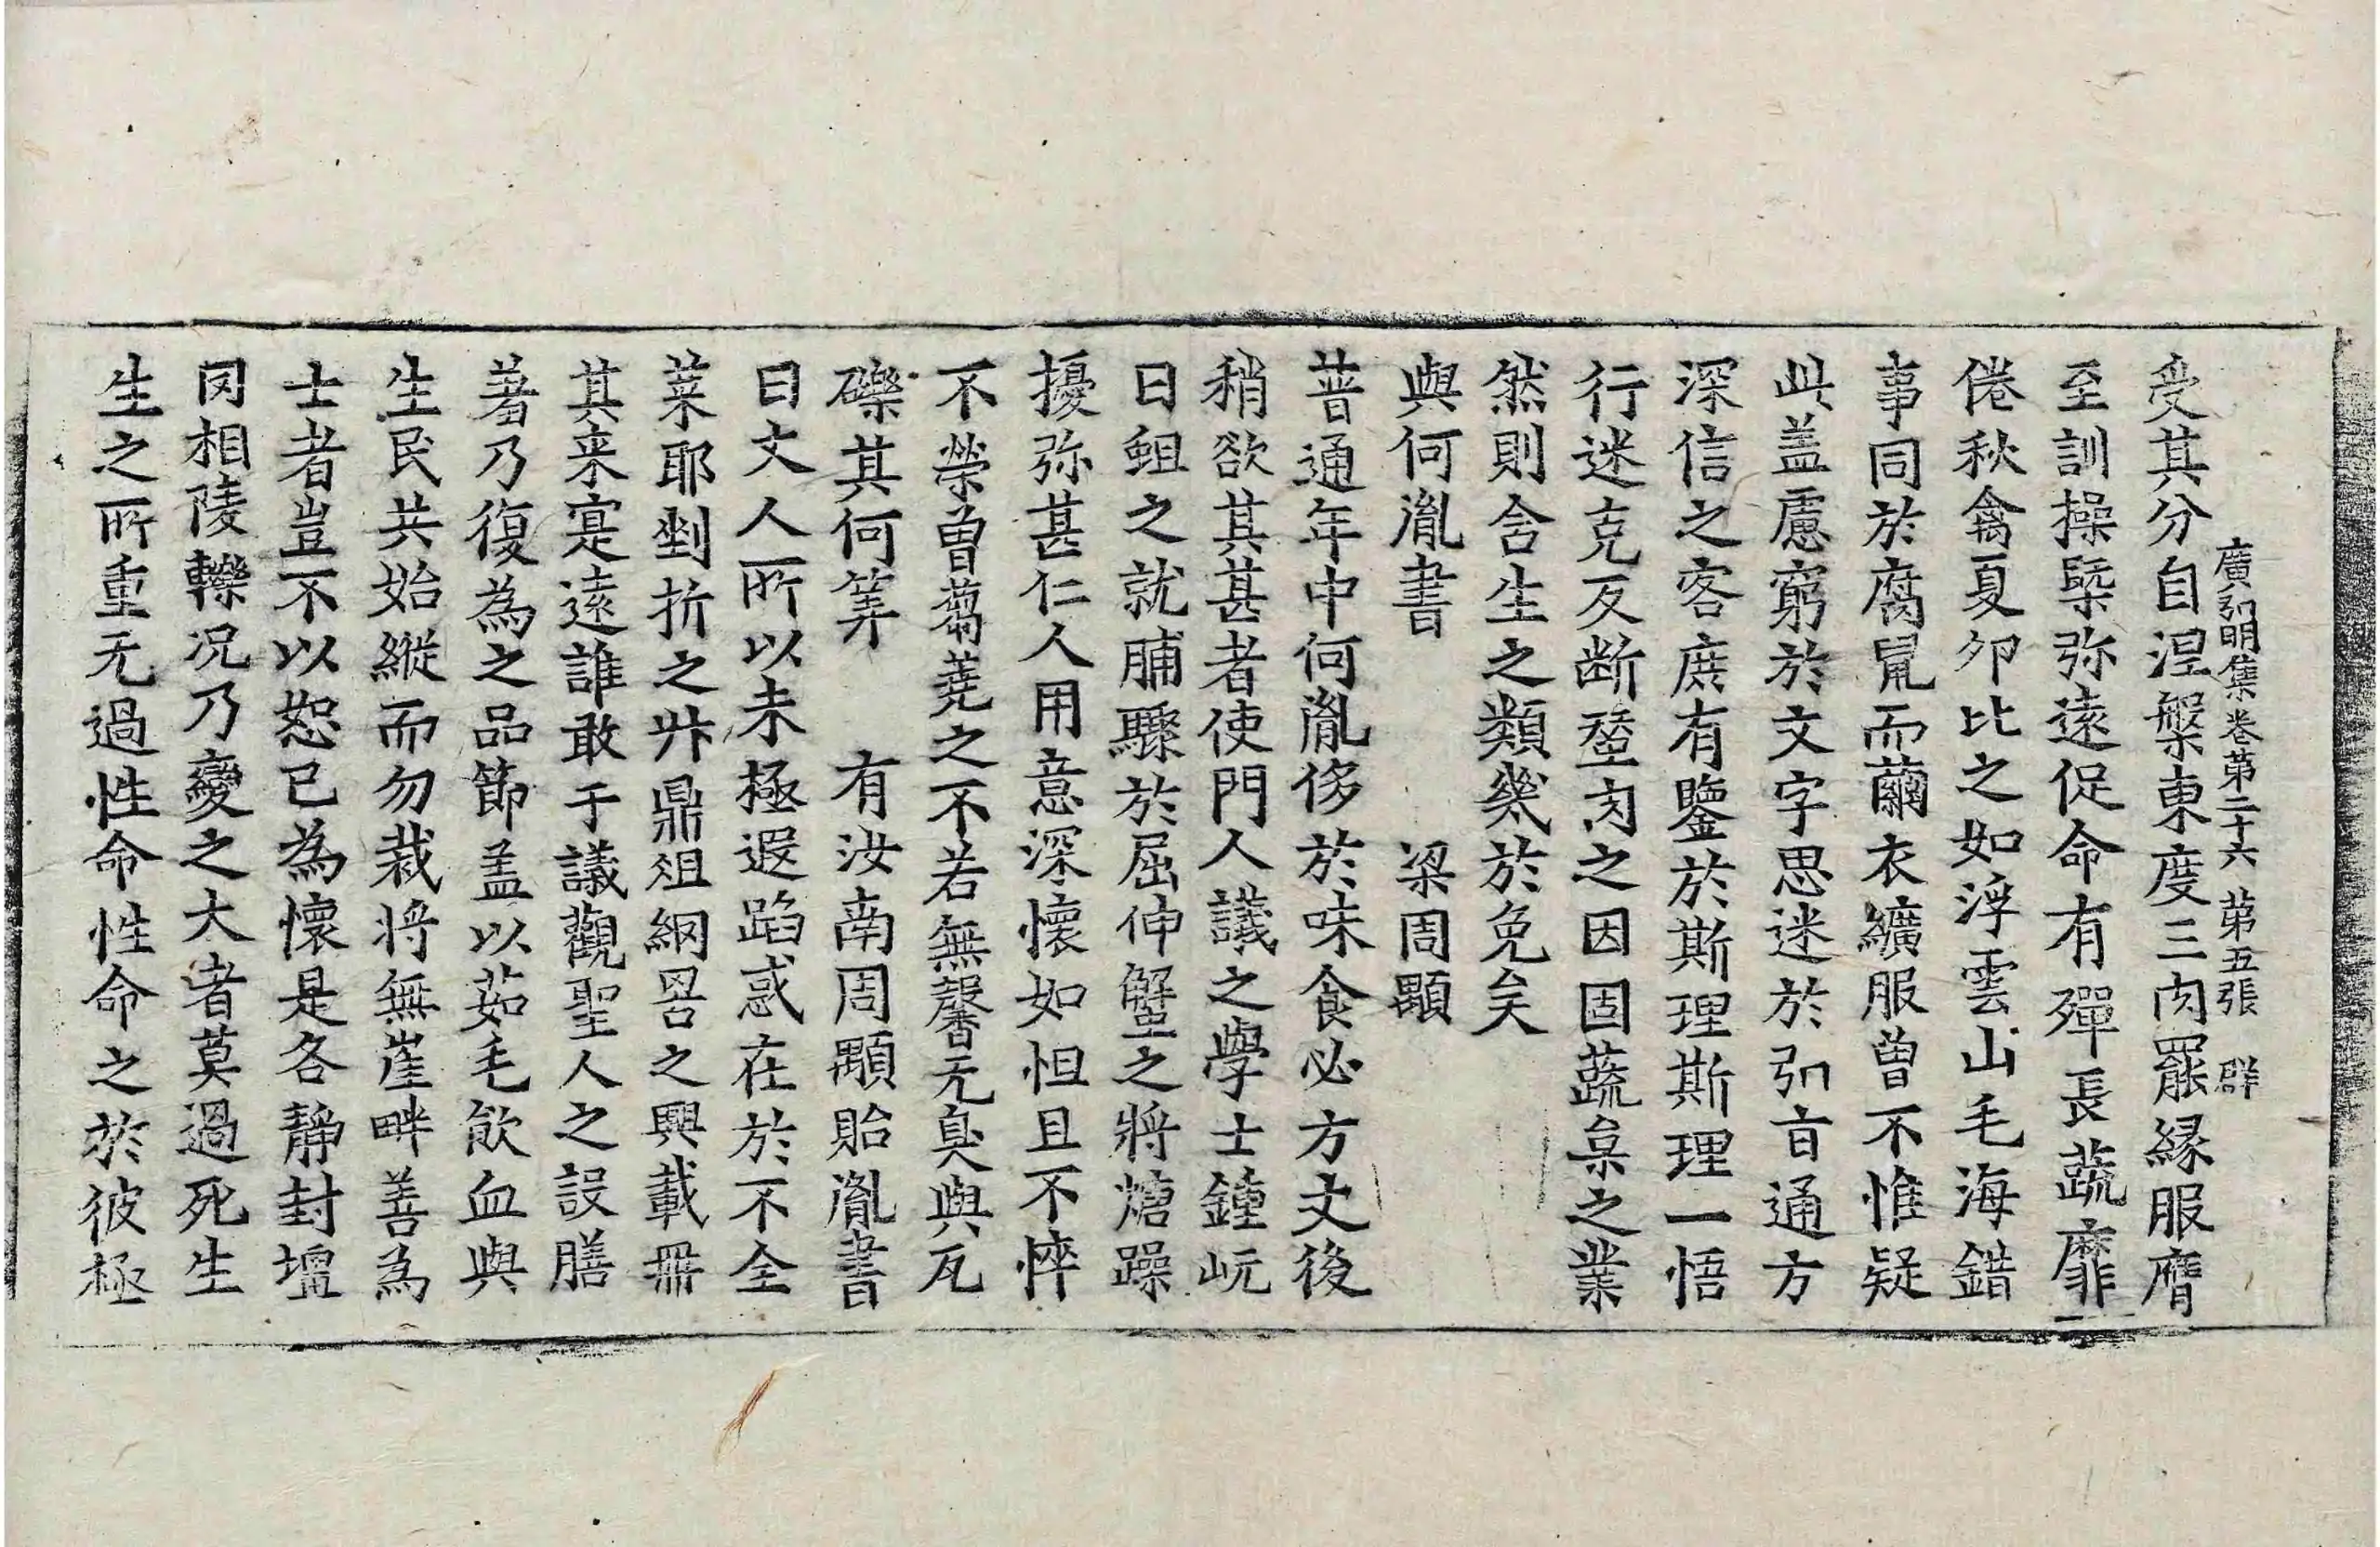 廣弘明集卷第二十六 第五張 群
受其分自涅槃東度三肉罷縁服膺
至訓操槩弥遠促命有殫長蔬靡
倦秋禽夏夘比之如浮雲山毛海錯
事同於腐鼠而蠒衣纊服曾不惟疑
此盖慮窮於文字思迷於弘旨通方
深信之客庶有鑒於斯理斯理一悟
行迷克反断蠶肉之因固蔬枲之業
然則含生之類幾於免矣
與何胤書 梁周顒
普通年中何胤侈於味食必方丈後
稍欲其甚者使門人議之學士鍾岏
曰䱇之就脯驟於屈伸蟹之將糖躁
擾弥甚仁人用意深懷如怛且不悴
不榮曾蒭蕘之不若無馨无臭與瓦
礫其何筭 有汝南周顒貽胤書
曰丈人所以未極遐蹈惑在於不全
菜耶剉折之升鼎俎網罟之興載冊
其来寔遠誰敢干議觀聖人之設膳
著乃復為之品節盖以茹毛飲血與
生民共始縱而勿裁将無崖畔善為
士者豈不以恕己為懷是各靜封壃
罔相陵轢况乃變之大者莫過死生
生之所重无過性命性命之於彼極